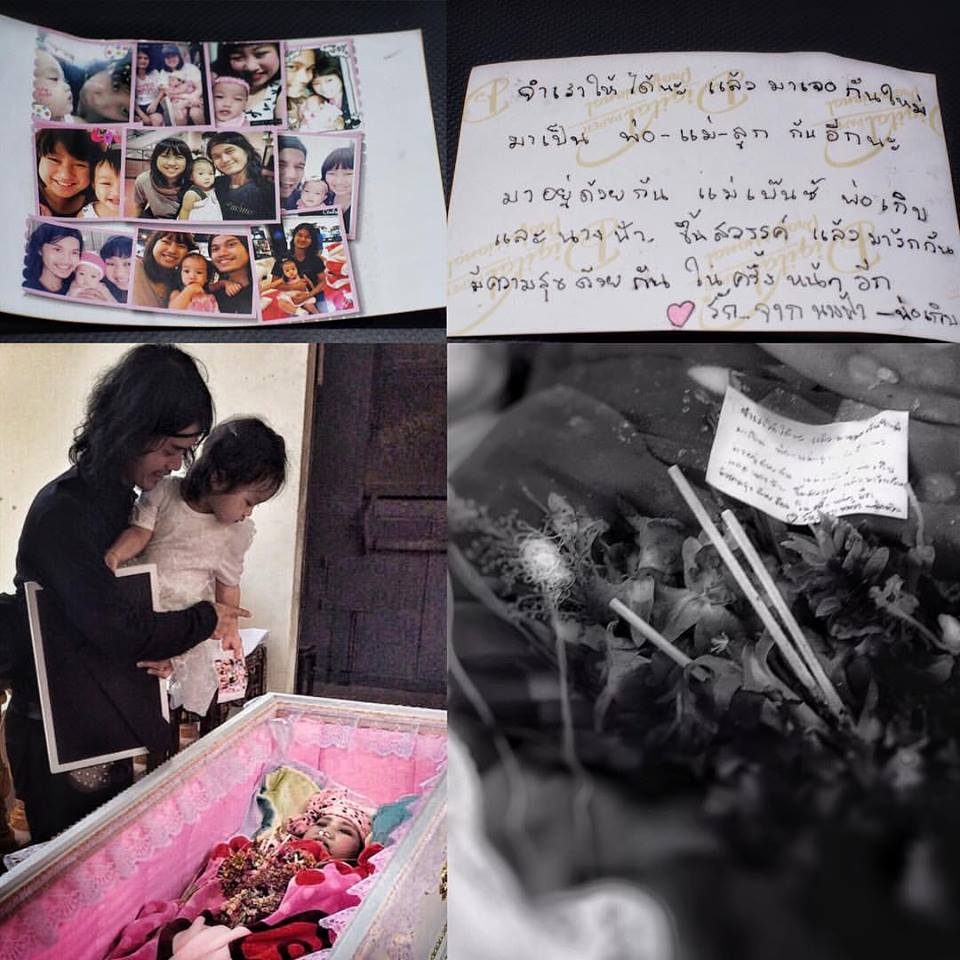 จำเราให้ได้นะ แล้ว มาเจอ กันใหม่
มาเป็น พ่อ-แม่-ลูก กันอีกนะ
มาอยู่ด้วยกัน แม่เบ๊นซ์ พ่อเกิบ
และ นางฟ้า ขึ้นสวรรค์ แล้วมารักกัน
มีความสุขด้วยกัน ใน ครั้ง หน้า อีก
รัก จาก นางฟ้า - พ่อเกิบ
Digital
Professional